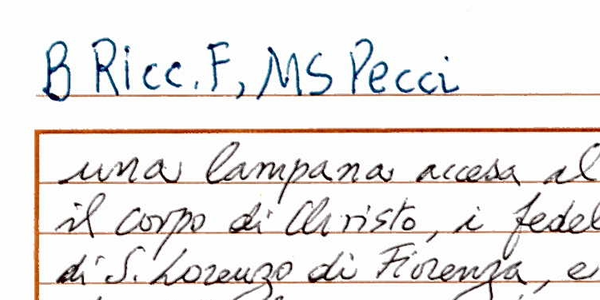 B Ricc. F, MS Pecci
una lampana accesa al
il corpo di Christo, i fedel
di S. Lorenzo di Fiorenza, e